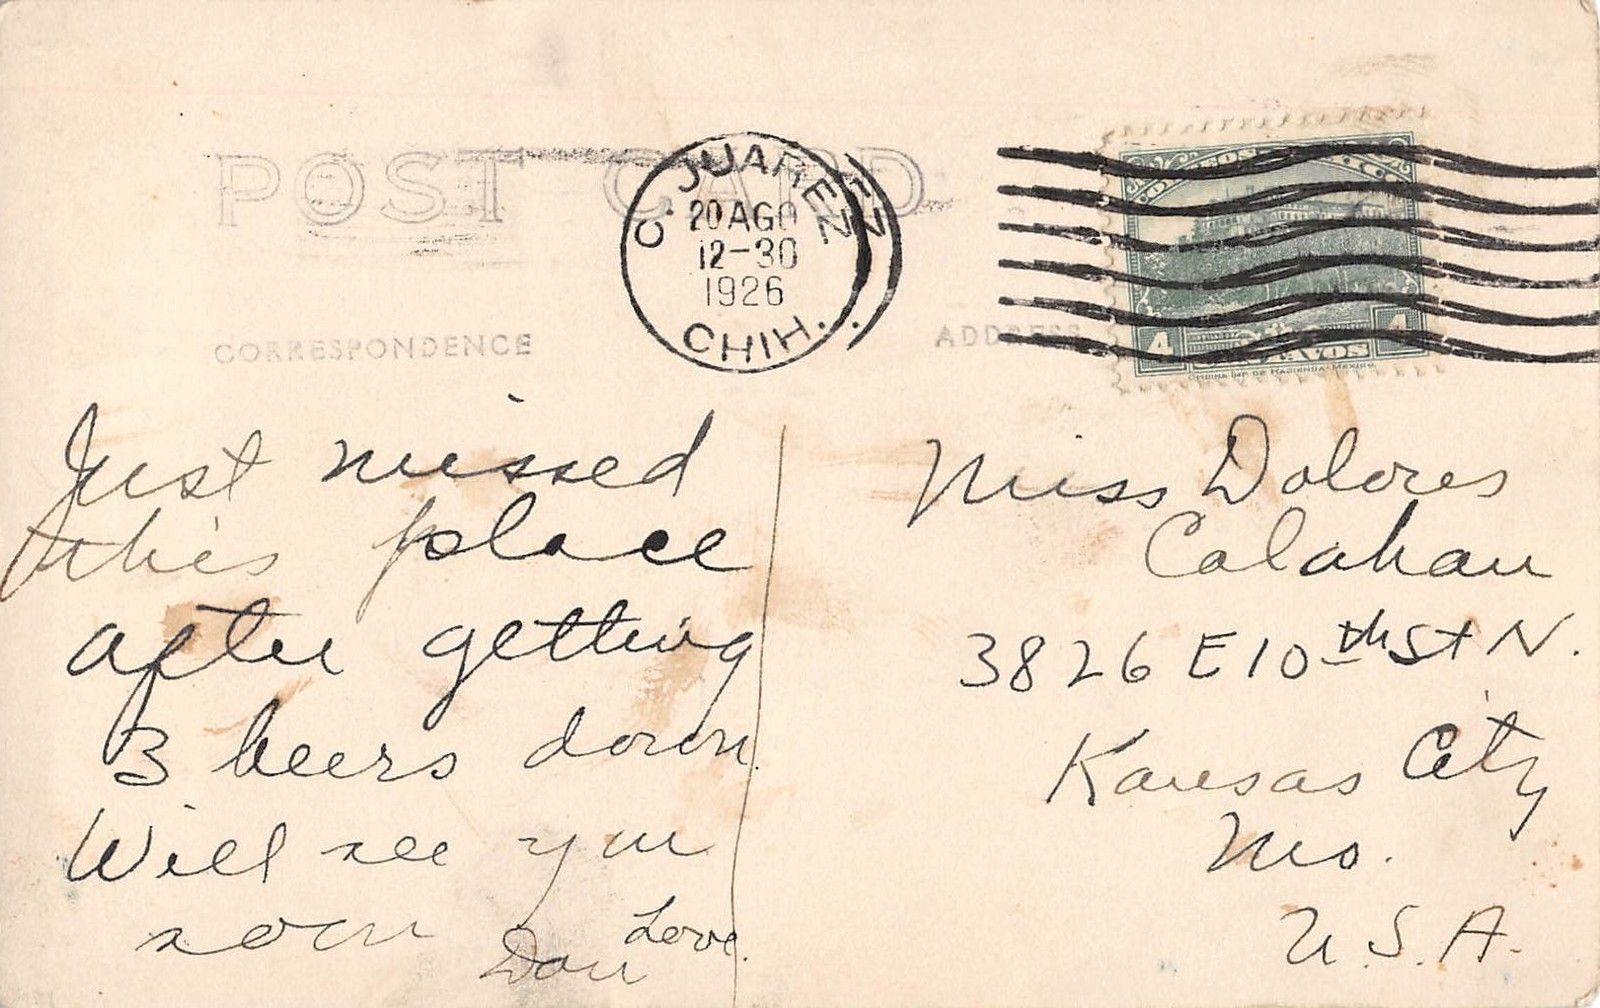 POST CARD
C. JUAREZ
20 AGO
12-30
1926
CHIH.
CORRESPONDENCE
ADDRESS
4 CENTAVOS 4
OFICINA IMP. DE HACIENDA-MEXICO
Just missed
this place
after getting
3 beers down.
Will see you
soon
Love.
Don
Miss Dolores
Calahan
3826 E 10th St N.
Kansas City
Mo.
U.S.A.